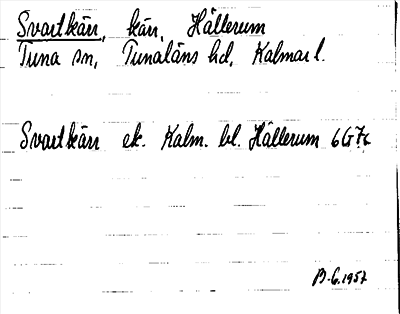 Svartkärr, kärr, Hällerum
Tuna sn, Tunaläns hd, Kalmar l.
Svartkärr ek. Kalm. bl. Hällerum 6G7c
B-G. 1957